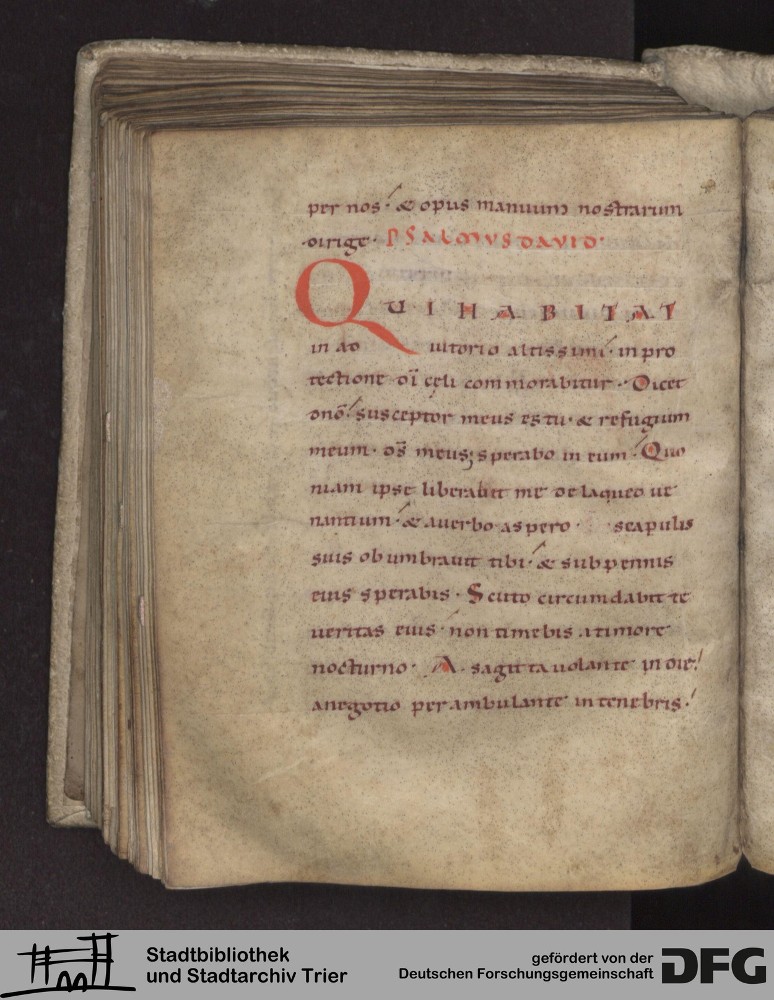 per nos · & opus manuum nostrarum
dirige · PSALMUS DAVID ·
QUI HABITAT
in ad iutorio altissimi · in pro
tectione dī celi commorabitur · Dicet
dnō · susceptor meus es tu · & refugium
meum · ds̄ meus; sperabo in eum · Quo
niam ipse liberabit me de laqueo ue
nantium · & a uerbo aspero · scapulis
suis obumbrauit tibi · & sub pennis
eius sperabis · Scuto circumdabit te
ueritas eius · non timebis a timore
nocturno · A sagitta uolante in die ·
a negotio perambulante in tenebris ·
Stadtbibliothek
und Stadtarchiv Trier
gefördert von der
Deutschen Forschungsgemeinschaft
DFG